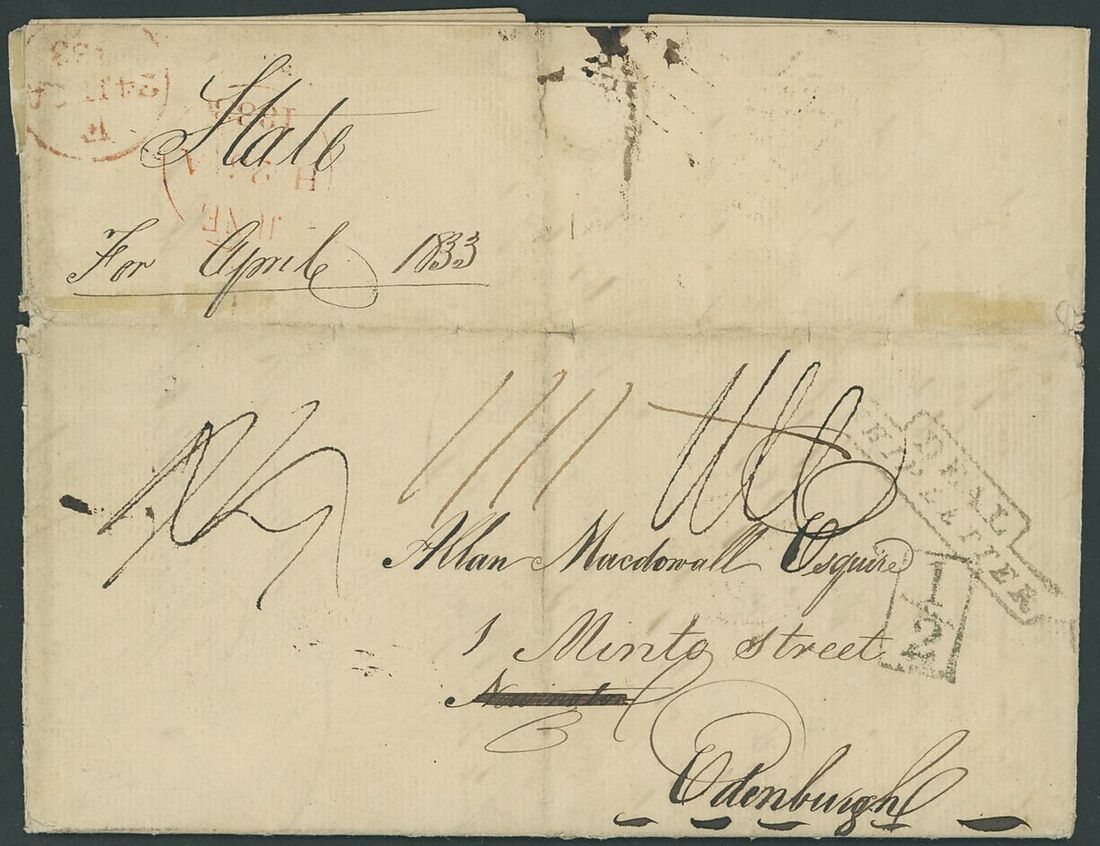 State
For April 1833
Allan Macdowall Esquire
1 Minto Street
Newington
Edenburgh
DEAL
SHIP LETTER
1/2